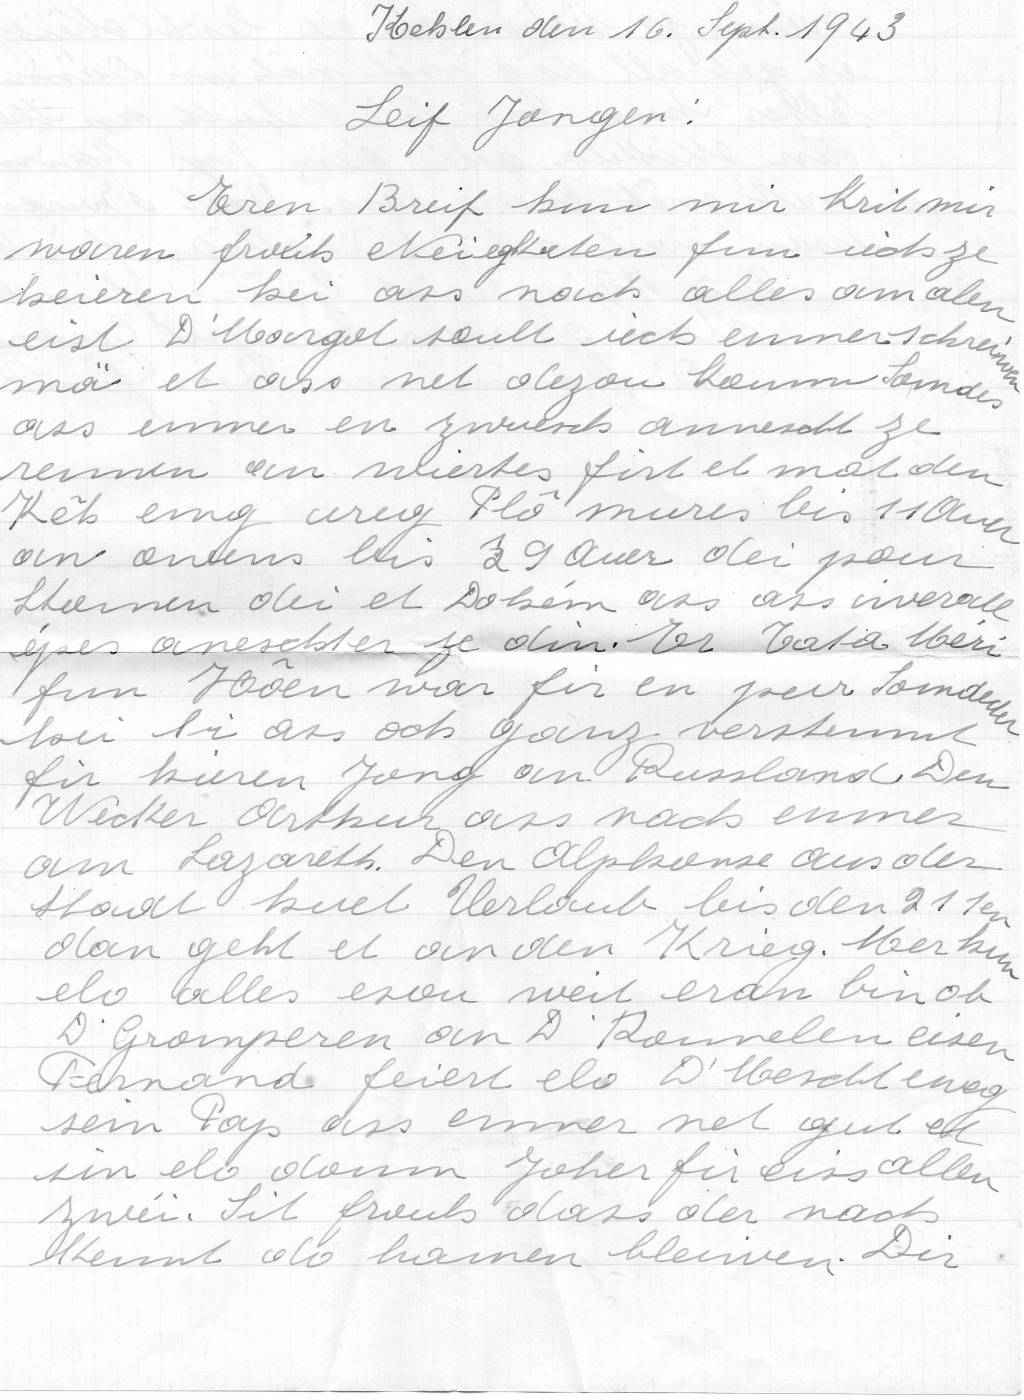 Kehlen den 16. Sept. 1943
Leif Jongen!
Eren Breif hun mir krit mir
waren frouh Neiegketen fun iech ze
heieren hei ass nach alles am alen
eist D'Margot soult iech emmer schreiwen
mä et ass net dezou koumm Somdes
ass emmer en zwuesch anescht ze
rennen an wiertes firt et mat den
Kéh eng ureg Plô mures bis 11 Auer
an owens bis 9 Auer dei pour
Stonnen dei et Dohém ass ass iwerall
épes aneschter ze din. Er Tata Méri
fun Hôen war fir en peur Somdech
hei hi ass och ganz verstemmt
fir hieren Jong an Russland Den
Wecker Arthur ass nach emmer
am Lazareth. Den Alphonse aus der
Stadt huet Verlaub bis den 21 ten
dan geht et an den Krieg. Mer hun
elo alles esou weit eran bin ob
D'Gromperen an D'Rommelen eisen
Fernand feiert elo D'Mescht eweg
sein Pap ass emmer net gut et
sin elo doumm Joher fir eiss allen
zwéi. Sit frouh dass der nach
kennt do hannen bleiwen. Dir